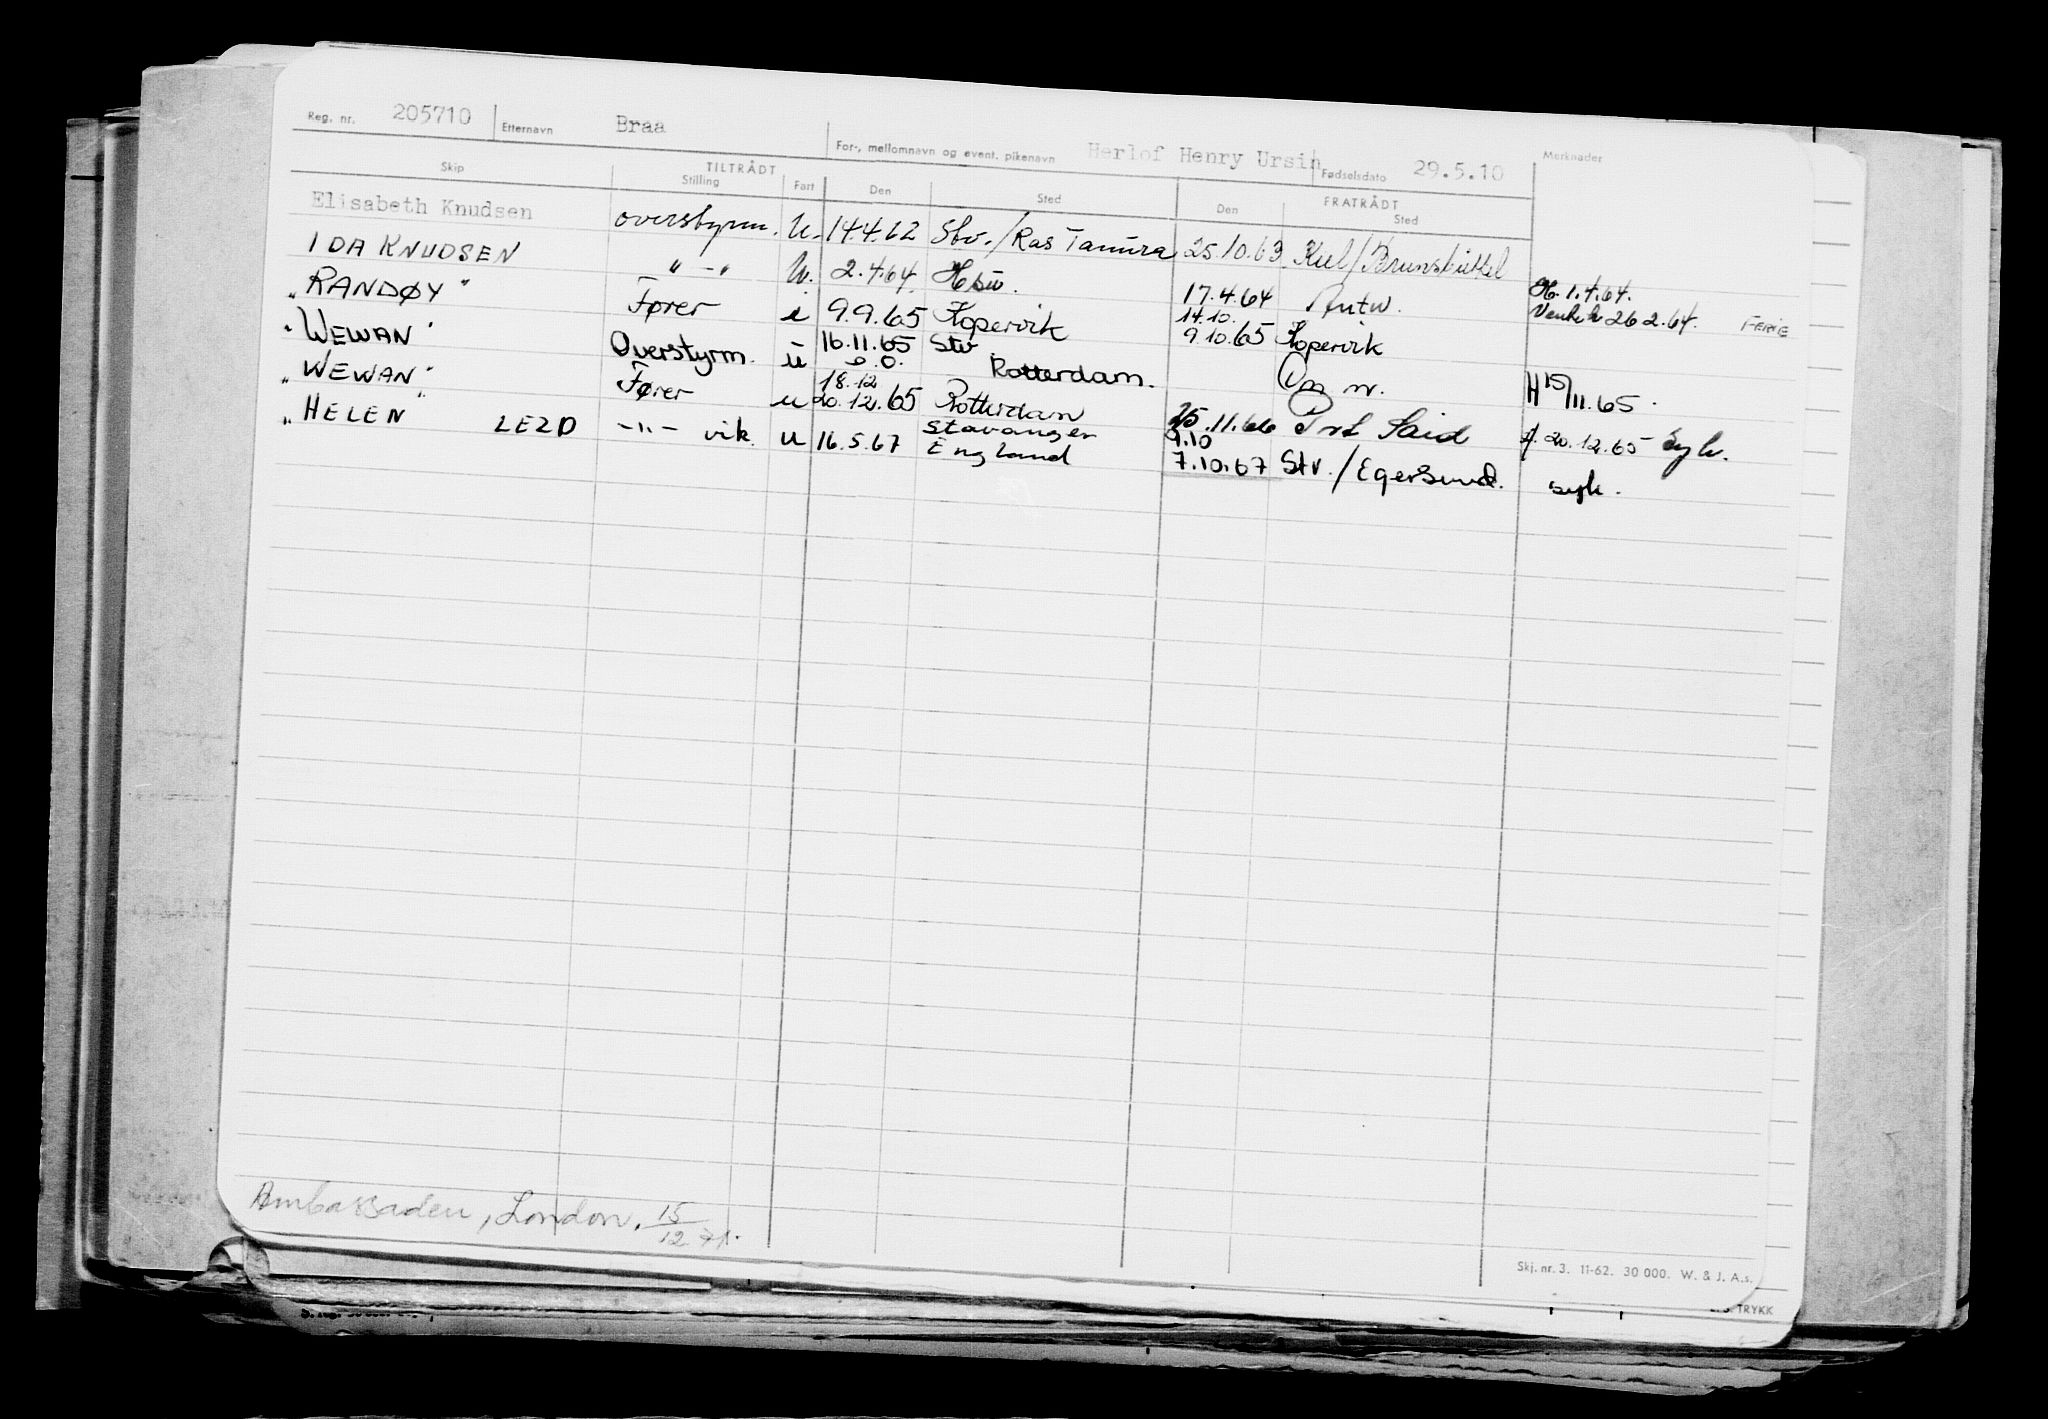 Reg. nr. 205710 Etternavn Braa For-, mellomnavn og event. pikenavn Herlof Henry Ursin Fødselsdato 29.5.10 Merknader
Skip TILTRÅDT Stilling Fart Den Sted FRATRÅDT Den Sted
Elisabeth Knudsen overstyrm. U. 14.4.62 Stv./Ras Tanura 25.10.63 Kiel/Brunsbüttel
IDA KNUDSEN " - " U. 2.4.64. 17.4.64 Antw. 1.4.64.
26.2.64. FERIE
"RANDØY" Fører i 9.9.65 Kopervik 14.10. 9.10.65 Kopervik
"WEWAN" Overstyrm. u 16.11.65 Stv Rotterdam. H 15/11.65.
"WEWAN" Fører u 18.12 20.12.65 Rotterdam 25.11.66 Port Said 20.12.65
"HELEN" LEZD -"- vik. u 16.5.67 Stavanger England 9.10 7.10.67 Stv./Egersund. syk.
Ambassaden, London, 15/12.71.
Skj. nr. 3. 11-62. 30 000. W. & J. A.s.
TRYKK